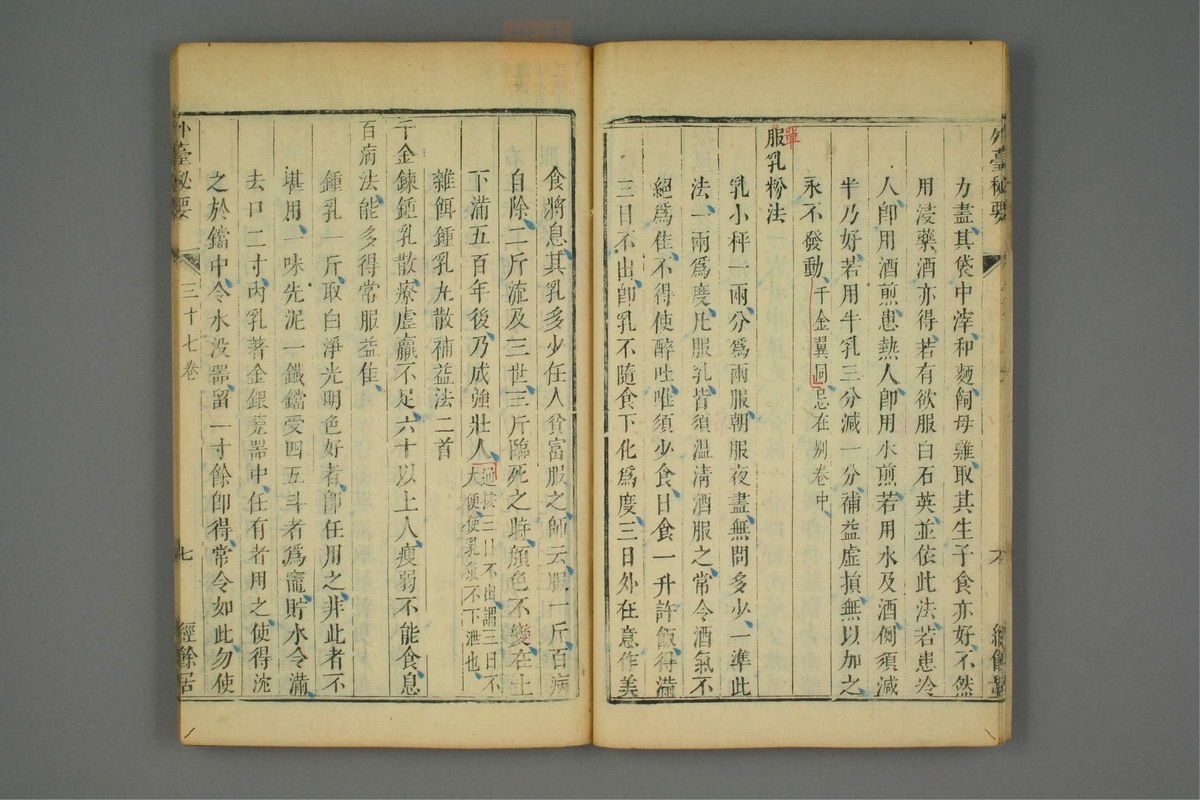 外臺秘要
力盡其袋中滓和麵飼母雞取其生子食亦好不然
用浸藥酒亦得若有欲服白石英並依此法若患冷
人卽用酒煎患熱人卽用水煎若用水及酒例須減
半乃好若用牛乳三分減一分補益虛損無以加之
永不發動千金翼同忌在別卷中
服乳粉法
單
乳小秤一兩分爲兩服朝服夜盡無問多少一準此
法一兩爲度凡服乳皆須溫淸酒服之常令酒氣不
絕爲佳不得使醉吐唯須少食日食一升許飯得滿
三日不出卽乳不隨食下化爲度三日外在意作美
食將息其乳多少任人貧富服之師云服一斤百病
自除二斤流及三世三斤臨死之時顔色不變在土
下滿五百年後乃成強壯人過按三日不出謂三日不
大便使乳氣不下泄也
雜餌鍾乳丸散補益法二首
千金鍊鍾乳散療虛羸不足六十以上人瘦弱不能食息
百病法能多得常服益佳
鍾乳一斤取白淨光明色好者卽任用之非此者不
堪用一味先泥一鐵鐺受四五斗者爲竈貯水令滿
去口二寸內乳著金銀甆器中任有者用之使得沈
之於鐺中令水没器留一寸餘卽得常令如此勿使
外臺秘要
三十七卷
七
經餘居